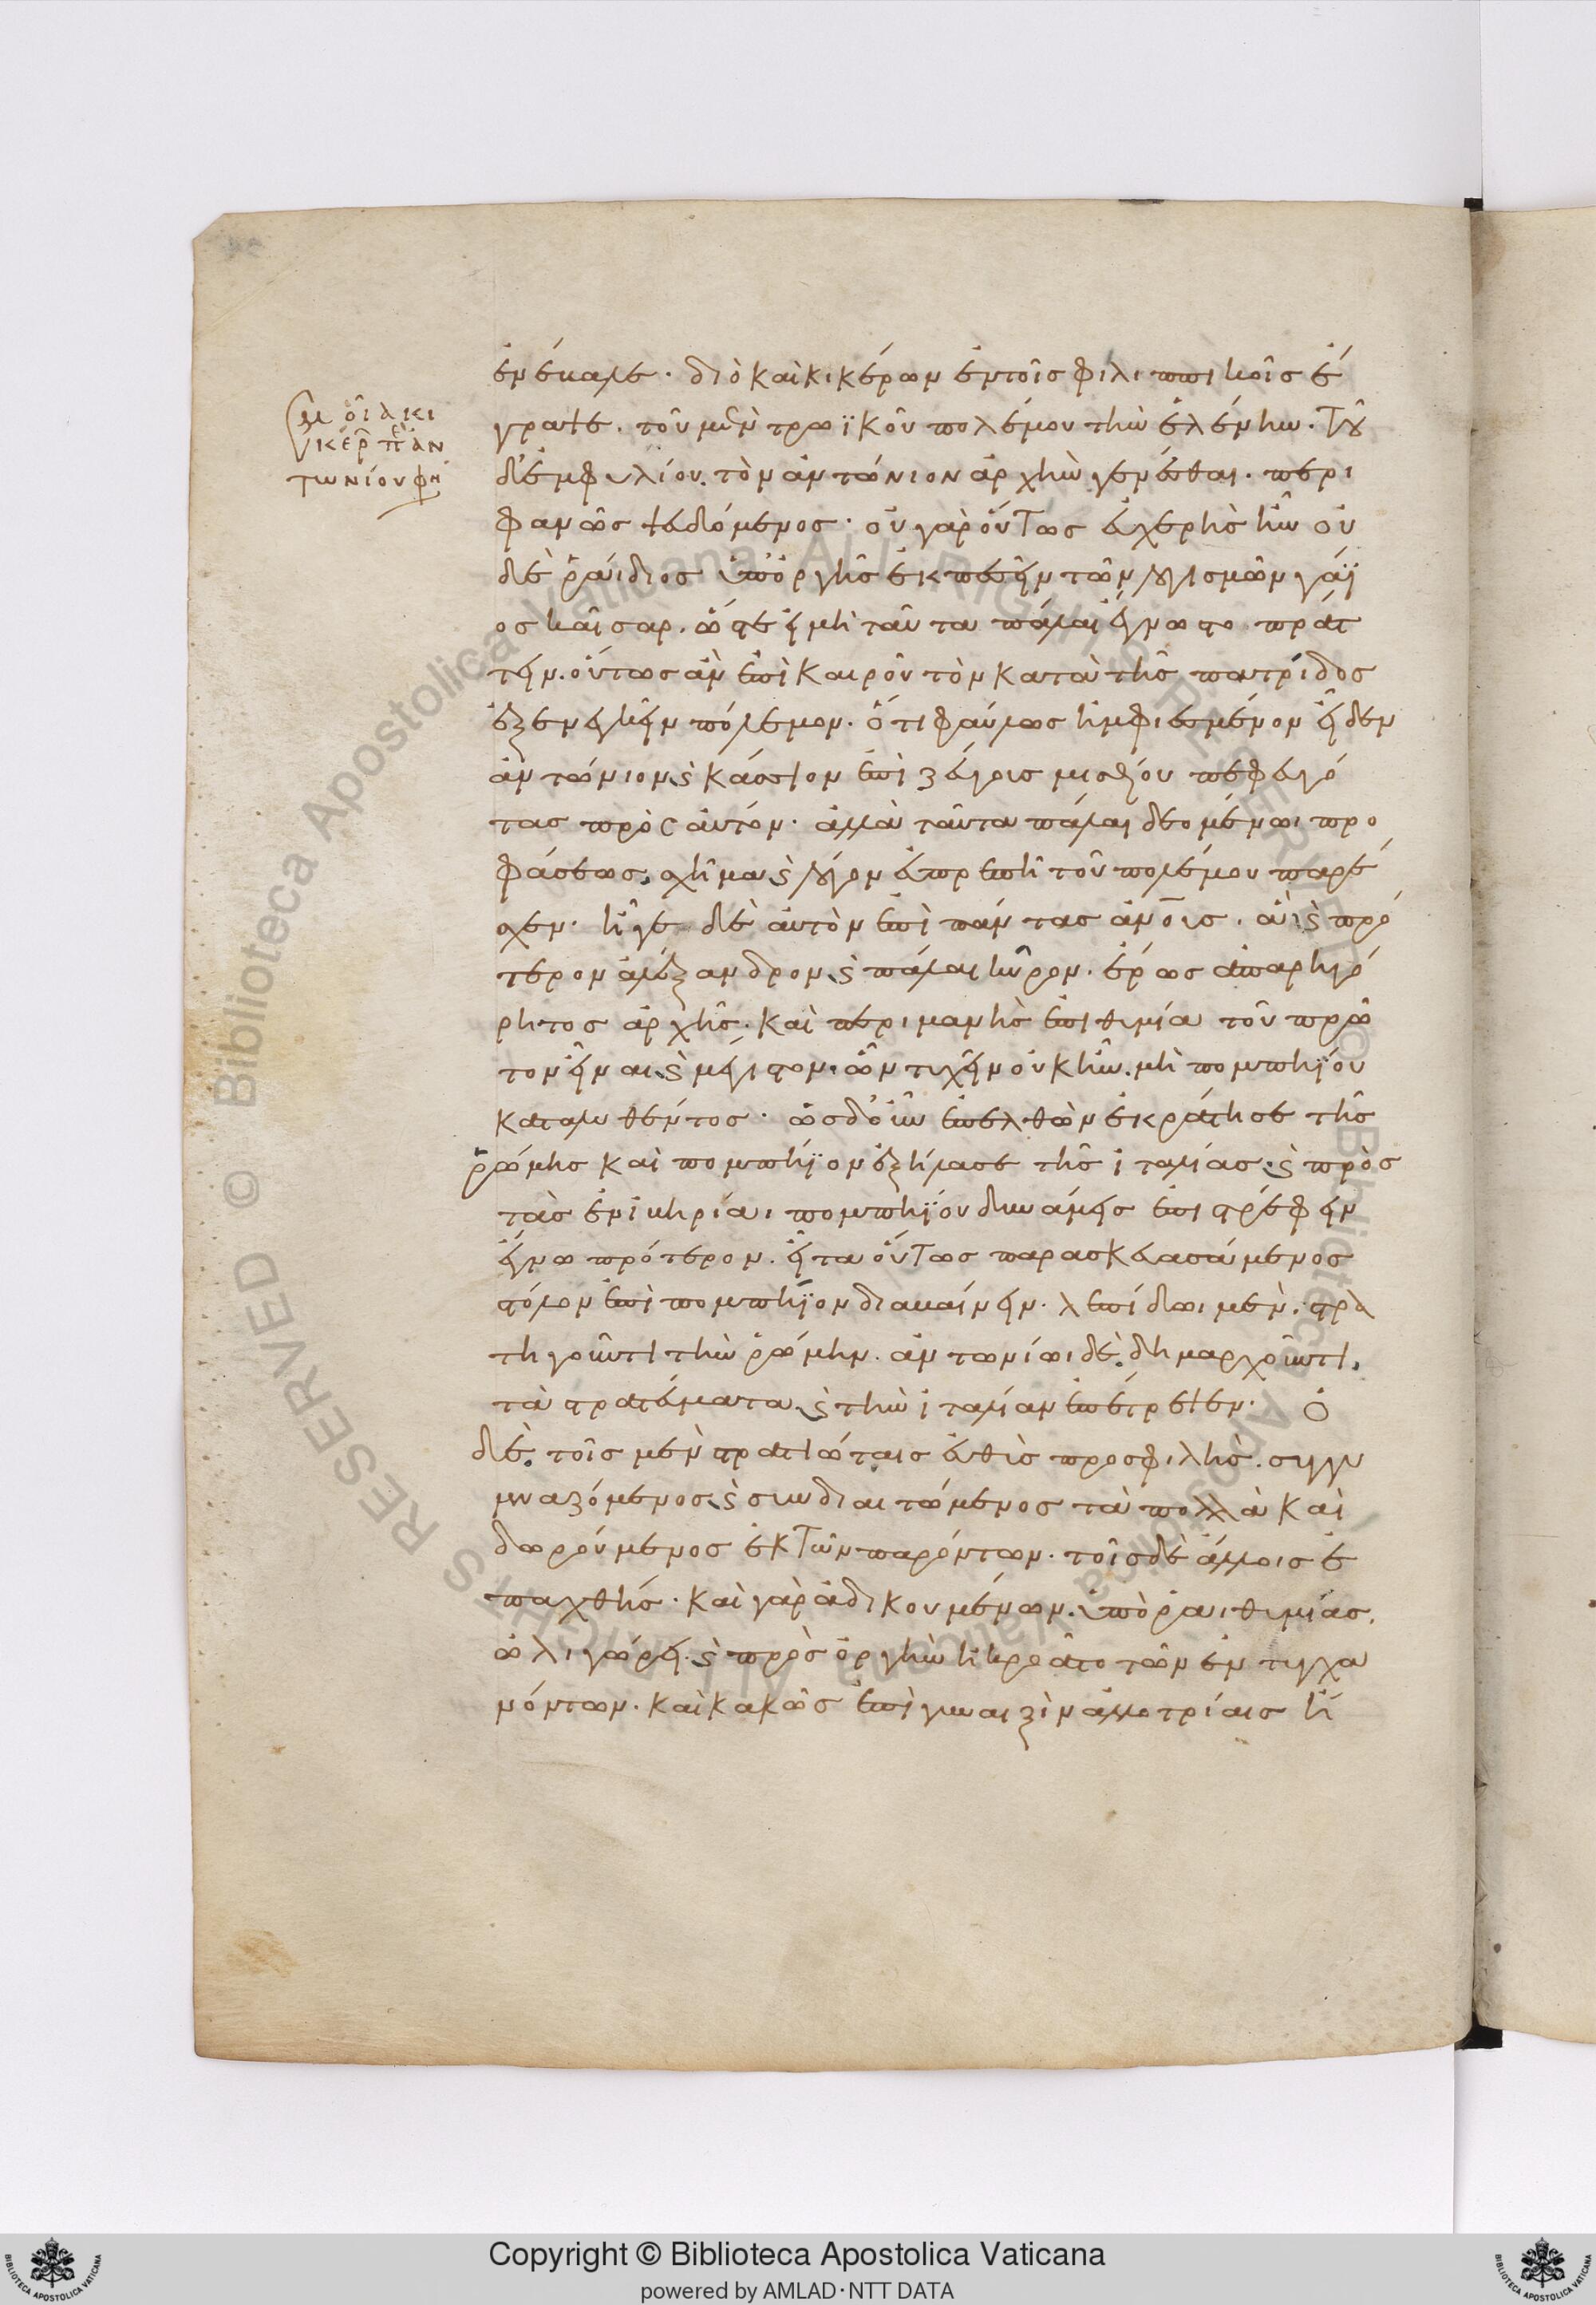 σημείωσαι οἷα Κι
κέρων περὶ Ἀν
τωνίου φησί
ἐνέβαλε. διὸ καὶ κικέρων ἐν τοῖς φιλιππικοῖς ἔ
γραψε. τοῦ μὲν τρωϊκοῦ πολέμου τὴν ἑλένην. τοῦ
δ' ἐμφυλίου. τὸν ἀντώνιον ἀρχὴν γενέσθαι. περι
φανῶς ψευδόμενος. οὐ γὰρ οὕτως εὐχερὴς ἦν οὐ
δὲ ῥάιδιος ὑπ' ὀργῆς ἐκπεσεῖν τῶν λογισμῶν γάϊ
ος καῖσαρ. ὥστε εἰ μὴ ταῦτα πάλαι ἔγνωστο πράτ
τειν. οὕτως ἂν ἐπὶ καιροῦ τὸν κατὰ τῆς πατρίδος
ἐξενεγκεῖν πόλεμον. ὅτι φαύλως ἠμφιεσμένον εἶδεν
ἀντώνιον καὶ κάσσιον ἐπὶ ζεύγους μισθίου πεφευγό
τας πρὸς αὐτόν. ἀλλὰ ταῦτα πάλαι δεομένωι προ
φάσεως. σχῆμα καὶ λόγον εὐπρεπῆ τοῦ πολέμου παρέ
σχεν. ἦγε δὲ αὐτὸν ἐπὶ πάντας ἀνθρώπους. ἃ καὶ πρό
τερον ἀλέξανδρον καὶ πάλαι κῦρον. ἔρως ἀπαρηγό
ρητος ἀρχῆς. καὶ περιμανὴς ἐπιθυμία τοῦ πρῶ
τον εἶναι καὶ μέγιστον. ὧν τυχεῖν οὐκ ἦν. μὴ πομπηΐου
καταλυθέντος. ὡς δ' οὖν ἐπελθὼν ἐκράτησε τῆς
ῥώμης καὶ πομπήϊον ἐξήλασε τῆς ἰταλίας. καὶ πρὸς
τὰς ἐν ἰβηρίαι πομπηΐου δυνάμεις ἐπιστρέφειν
ἔγνω πρότερον. εἶτα οὕτως παρασκευασάμενος
στόλον ἐπὶ πομπήϊον διαβαίνειν. λεπίδωι μὲν. στρα
τηγοῦντι τὴν ῥώμην. ἀντωνίωι δὲ δημαρχοῦντι.
τὰ στρατεύματα καὶ τὴν ἰταλίαν ἐπέτρεψεν. ὁ
δὲ. τοῖς μὲν στρατιώταις εὐθὺς προσφιλὴς. συγγυ
μναζόμενος καὶ συνδιαιτώμενος τὰ πολλὰ καὶ
δωρούμενος ἐκ τῶν παρόντων. τοῖς δὲ ἄλλοις ἐ
παχθής. καὶ γὰρ ἀδικουμένων. ὑπὸ ῥαιθυμίας.
ὠλιγώρει. καὶ πρὸς ὀργὴν ἠκροᾶτο τῶν ἐντυγχα
νόντων. καὶ κακῶς ἐπὶ γυναιξὶν ἀλλοτρίαις ἤ
Copyright © Biblioteca Apostolica Vaticana
powered by AMLAD·NTT DATA